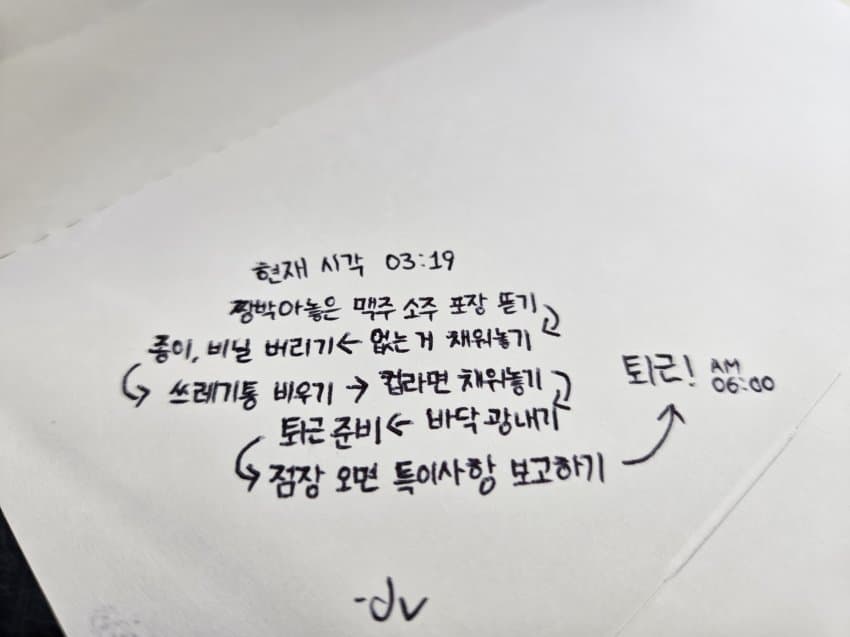 현재 시각 03:19
짱박아놓은 맥주 소주 포장 뜯기
종이, 비닐 버리기 ← 없는 거 채워놓기
쓰레기통 비우기 → 컵라면 채워놓기
퇴근 준비 ← 바닥 광내기
점장 오면 특이사항 보고하기
퇴근! AM 06:00
-dv